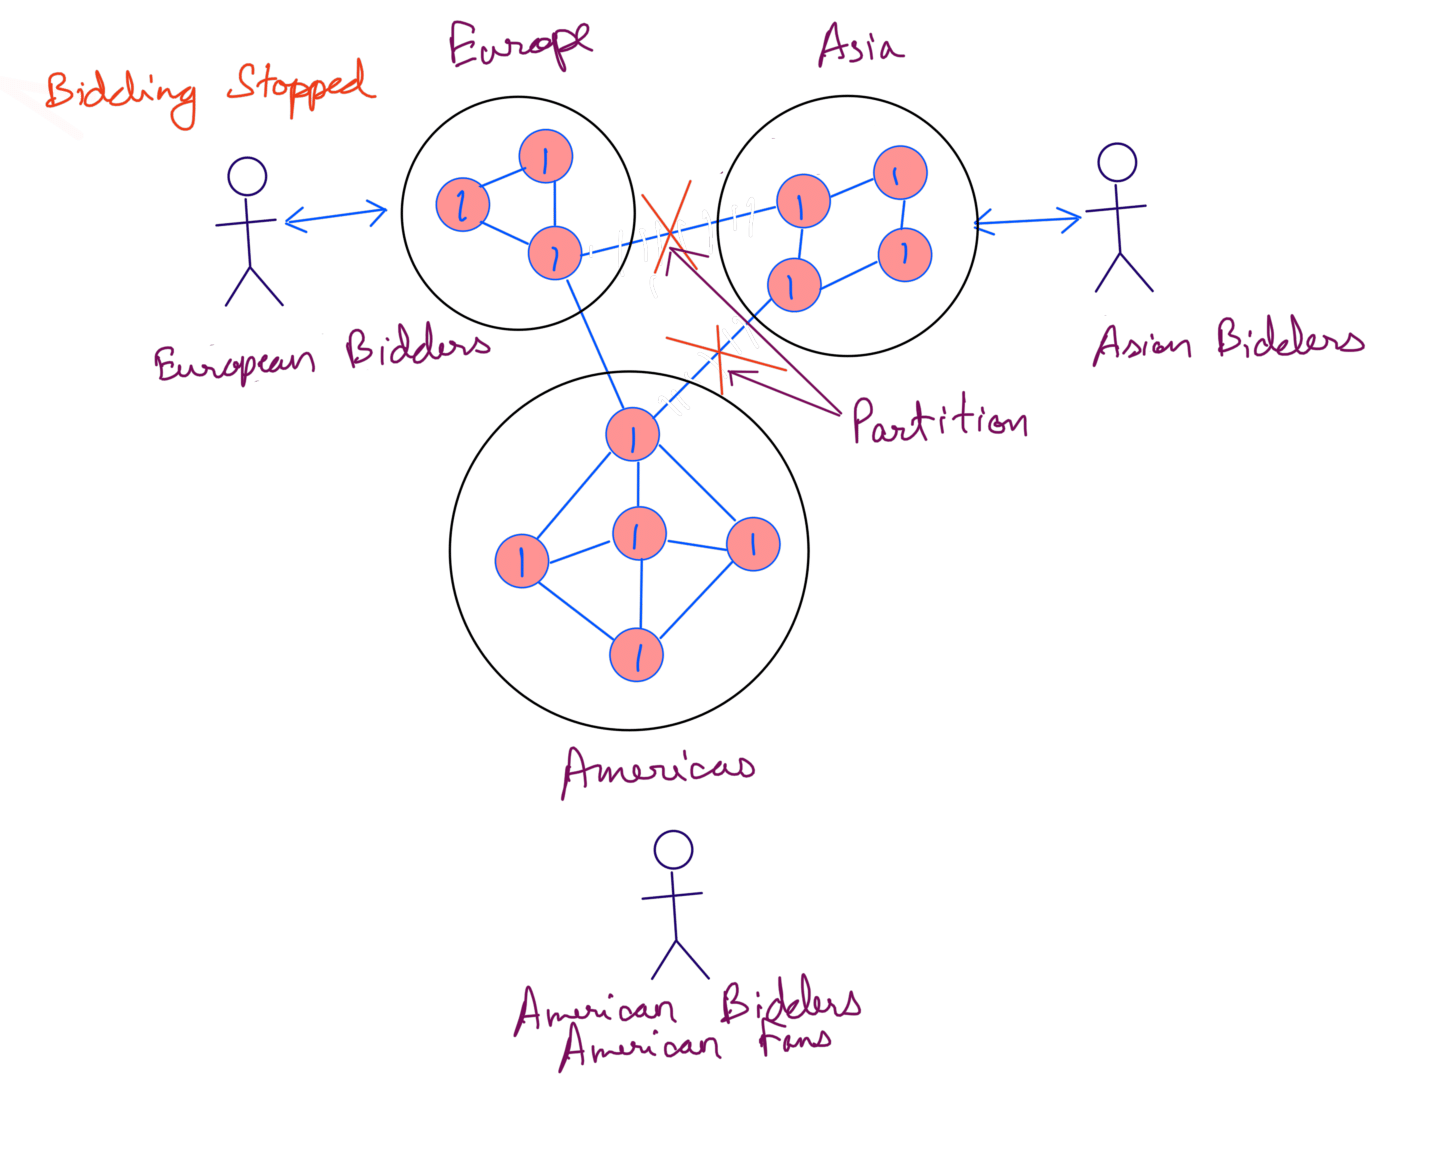 Europe
Asia
Bidding Stopped
1
1
1
1
1
1
1
European Bidders
Asian Bidders
Partition
1
1
1
1
1
Americas
American Bidders
American Fans